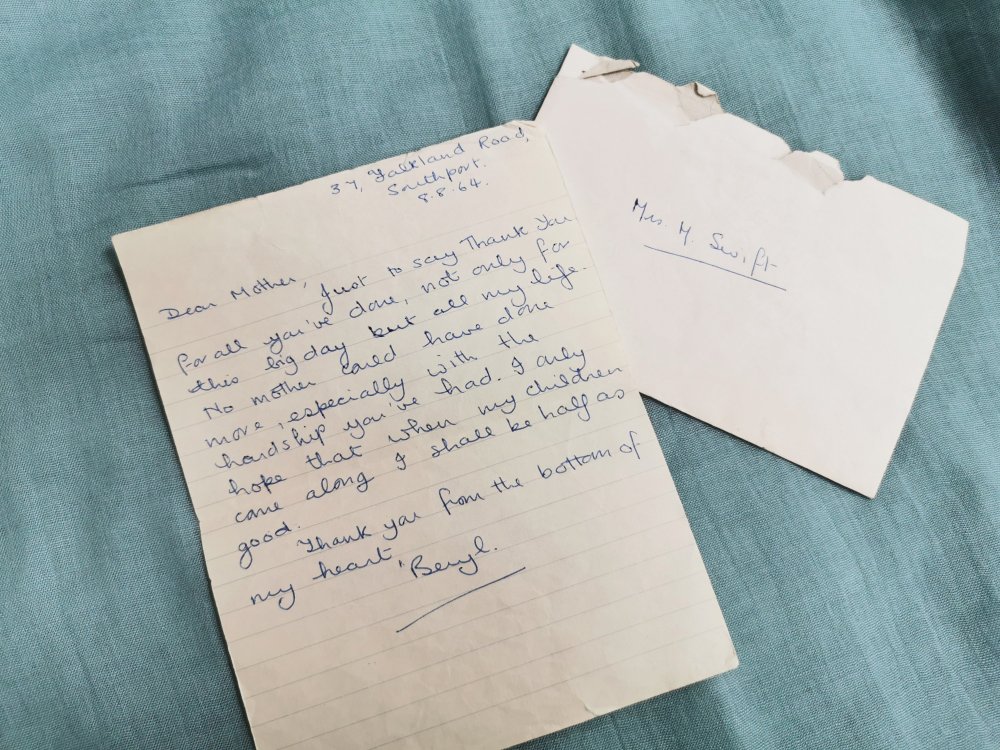 37, Falkland Road,
Southport.
8.8.64.
Dear Mother,
Just to say Thank You
for all you've done, not only for
this big day but all my life.
No mother could have done
more, especially with the
hardship you've had. I only
hope that when my children
come along I shall be half as
good.
Thank you from the bottom of
my heart,
Beryl.
Mrs. M. Swift